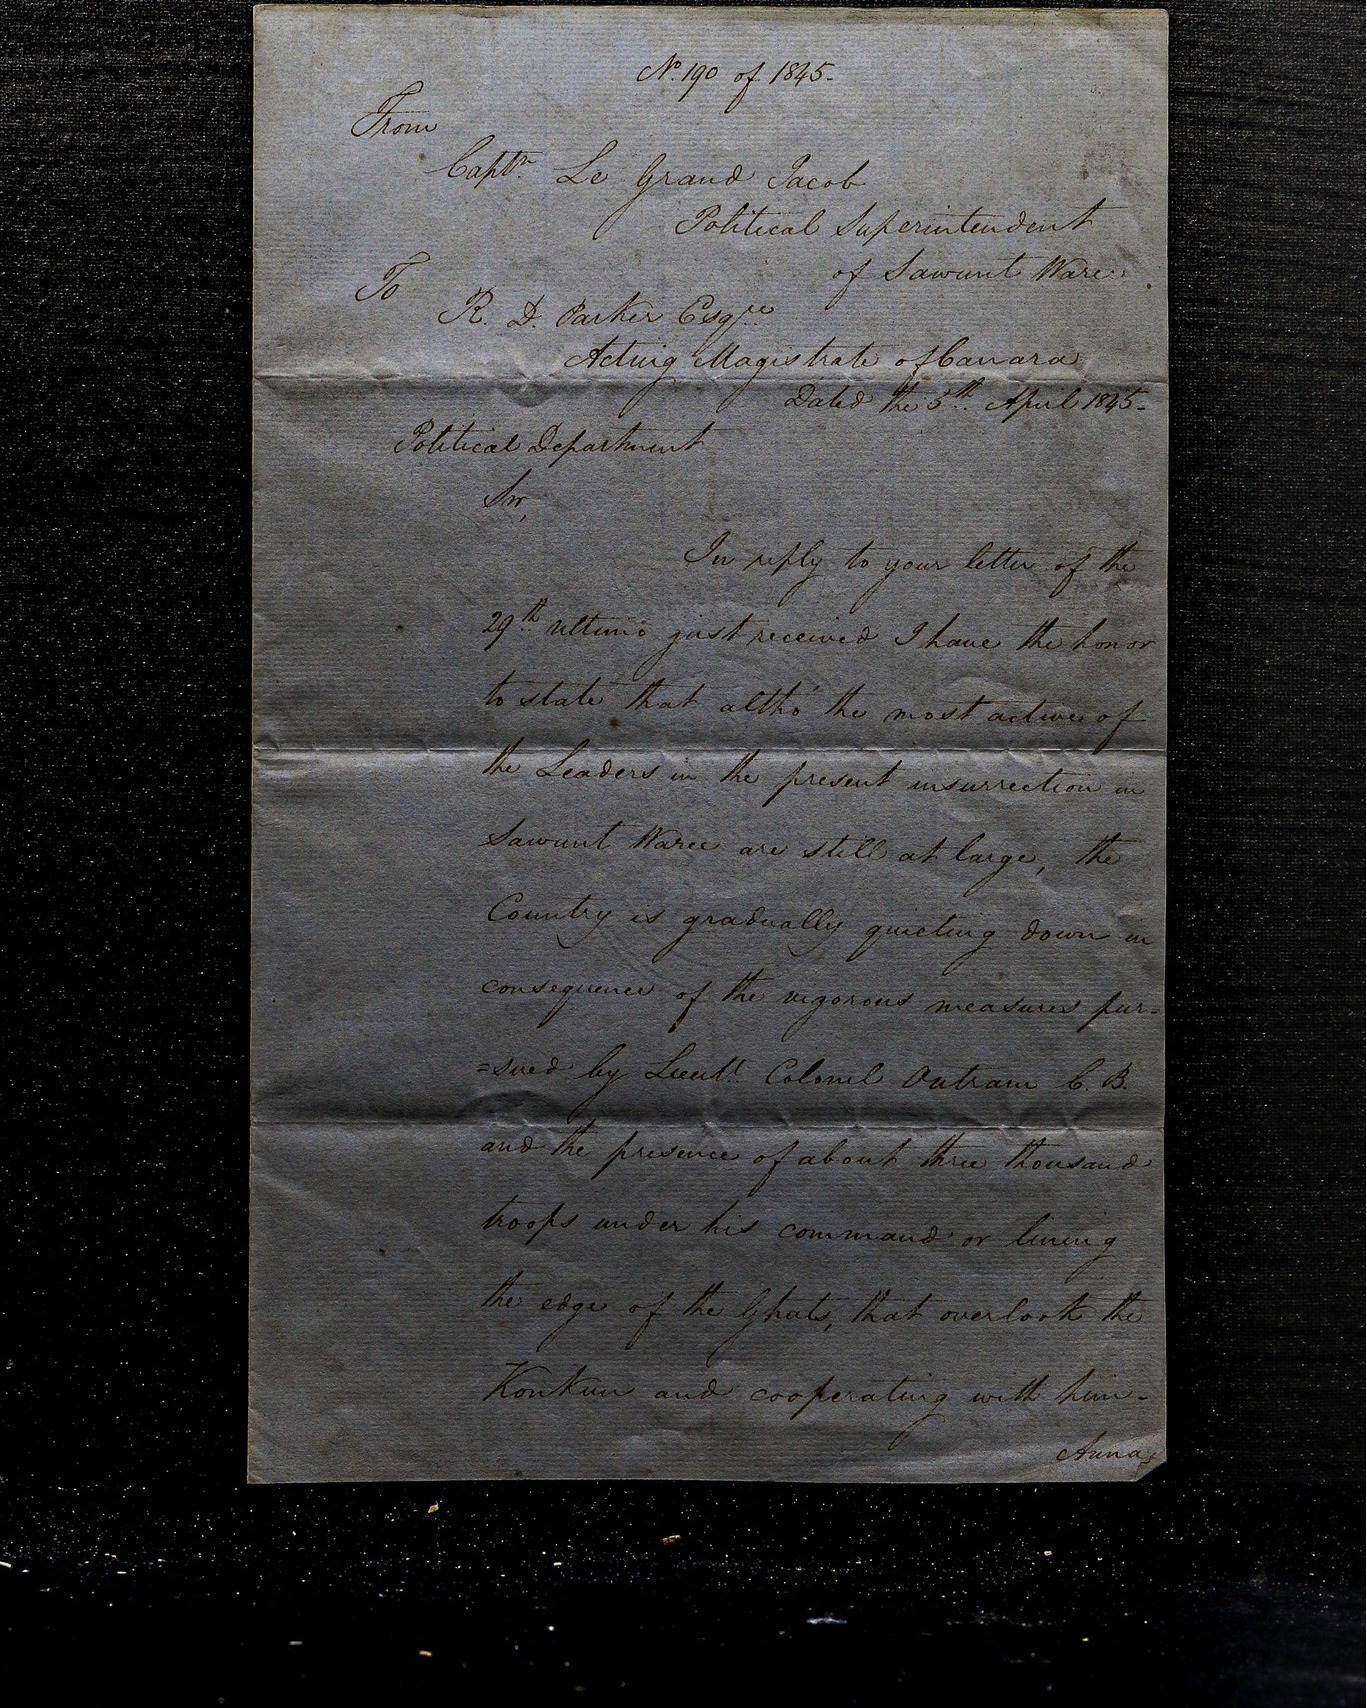 No. 190 of 1845-
From
Captn. Le Grand Jacob
Political Superintendent
of Sawunt Waree
To
R. D. Parker Esqre
Acting Magistrate of Canara
Dated the 5th. April 1845-
Political Department
Sir,
In reply to your letter of the
29th ultimo just received I have the honor
to state that altho' the most active of
the Leaders in the present insurrection in
Sawunt Waree are still at large, the
Country is gradually quieting down in
consequence of the vigorous measures pur=
=sued by Lieutt. Colonel Outram C. B.
and the presence of about three thousand
troops under his command or lining
the edge of the Ghats, that overlook the
Konkun and cooperating with him-